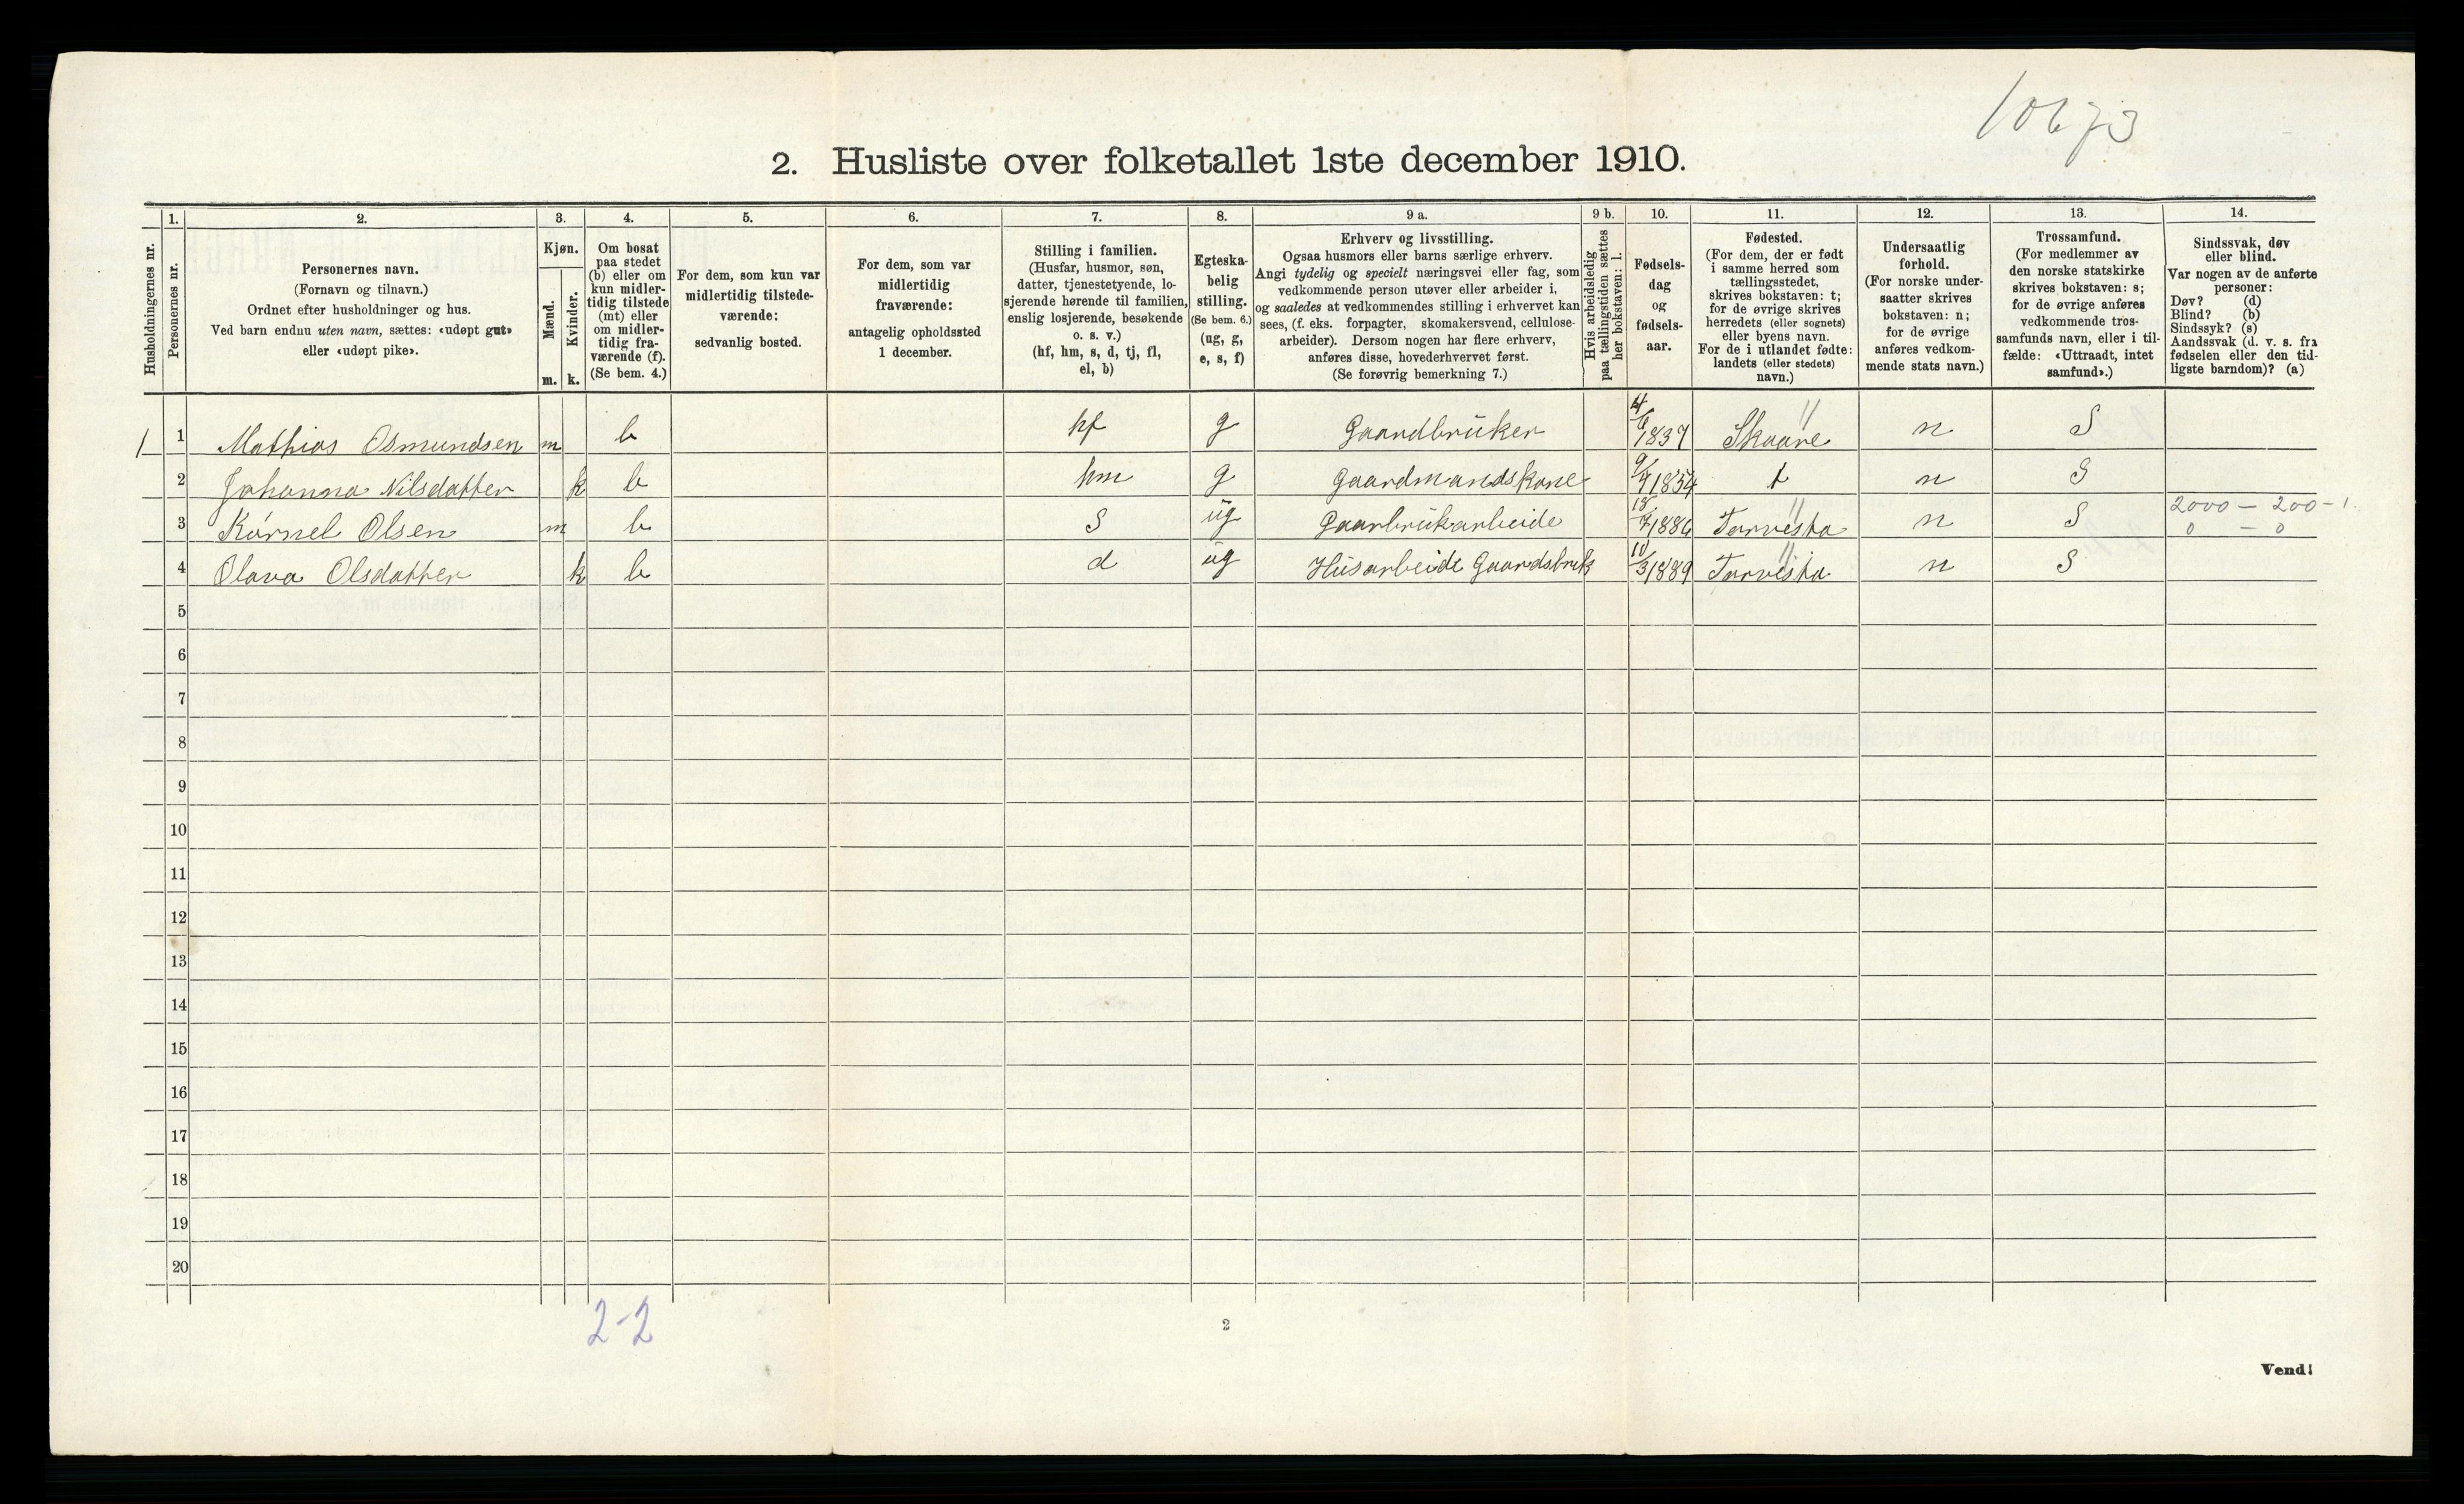 10673
2. Husliste over folketallet 1ste december 1910.
Husholdningernes nr.
1.
Personernes nr.
2.
Personernes navn.
(Fornavn og tilnavn.)
Ordnet efter husholdninger og hus.
Ved barn endnu uten navn, sættes: «udøpt gut»
eller «udøpt pike».
3.
Kjøn.
Mænd.
Kvinder.
m. k.
4.
Om bosat
paa stedet
(b) eller om
kun midler-
tidig tilstede
(mt) eller
om midler-
tidig fra-
værende (f).
(Se bem. 4.)
5.
For dem, som kun var
midlertidig tilstede-
værende:
sedvanlig bosted.
6.
For dem, som var
midlertidig
fraværende:
antagelig opholdssted
1 december.
7.
Stilling i familien.
(Husfar, husmor, søn,
datter, tjenestetyende, lo-
sjerende hørende til familien,
enslig losjerende, besøkende
o. s. v.)
(hf, hm, s, d, tj, fl,
el, b)
8.
Egteska-
belig
stilling.
(Se bem. 6.)
(ug, g,
e, s, f)
9 a.
Erhverv og livsstilling.
Ogsaa husmors eller barns særlige erhverv.
Angi tydelig og specielt næringsvei eller fag, som
vedkommende person utøver eller arbeider i,
og saaledes at vedkommendes stilling i erhvervet kan
sees, (f. eks. forpagter, skomakersvend, cellulose-
arbeider). Dersom nogen har flere erhverv,
anføres disse, hovederhvervet først.
(Se forøvrig bemerkning 7.)
9 b.
Hvis arbeidsledig
paa tællingstiden sættes
her bokstaven: l.
10.
Fødsels-
dag
og
fødsels-
aar.
11.
Fødested.
(For dem, der er født
i samme herred som
tællingsstedet,
skrives bokstaven: t;
for de øvrige skrives
herredets (eller sognets)
eller byens navn.
For de i utlandet fødte:
landets (eller stedets)
navn.)
12.
Undersaatlig
forhold.
(For norske under-
saatter skrives
bokstaven: n;
for de øvrige
anføres vedkom-
mende stats navn.)
13.
Trossamfund.
(For medlemmer av
den norske statskirke
skrives bokstaven: s;
for de øvrige anføres
vedkommende tros-
samfunds navn, eller i til-
fælde: «Uttraadt, intet
samfund».)
14.
Sindssvak, døv
eller blind.
Var nogen av de anførte
personer:
Døv? (d)
Blind? (b)
Sindssyk? (s)
Aandssvak (d. v. s. fra
fødselen eller den tid-
ligste barndom)? (a)
1 1 Mathias Osmundsen m b hf g Gaardbruker 1837 Skaare n S
2 Johanna Nilsdatter k b hm g Gaardmandskone 9/7 1834 t n S
3 Kórnel Olsen m b S ug Gaarbrukarbeide 18/7 1886 Torvesta n S 2000 – 200 – 1
0 – 0
4 Olava Olsdatter k b d ug Husarbeide Gaardsbruk 10/3 1889 Torvesta n S
5
6
7
8
9
10
11
12
13
14
15
16
17
18
19
20
2-2
2
Vend!